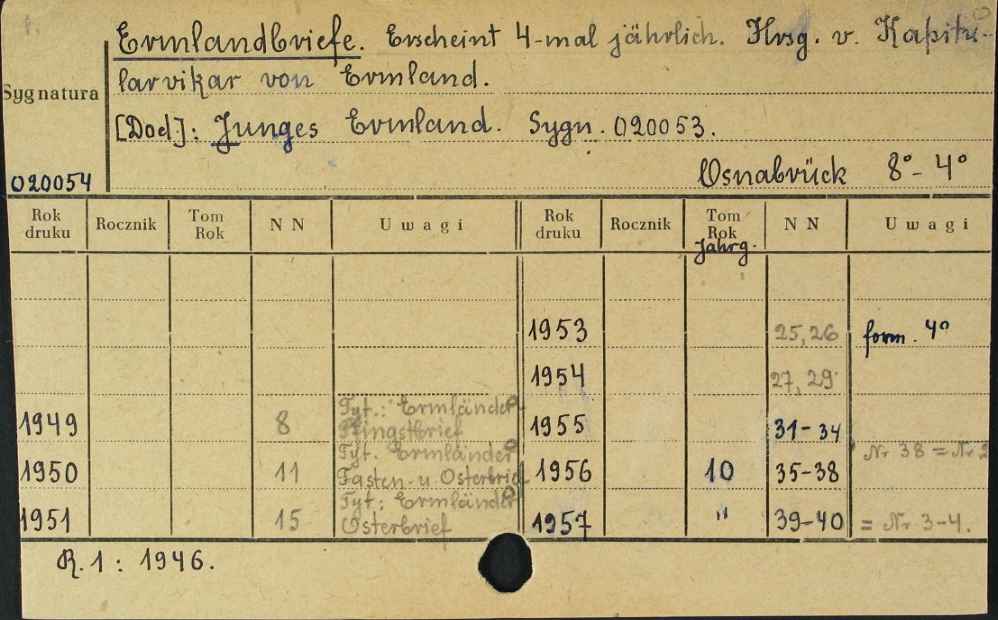 Ermlandbriefe. Erscheint 4-mal jährlich. Hrsg. v. Kapitu-
larvikar von Ermland.
Sygnatura
[Dod]: Junges Ermland. Sygn. 020053.
020054
Osnabrück 8° - 4°
Rok druku Rocznik Tom Rok NN Uwagi Rok druku Rocznik Tom Rok Jahrg. NN Uwagi
1953 25, 26 form. 4°
1954 27, 29
1949 8 Tyt.: Ermländer Pfingstbrief 1955 31-34
1950 11 Tyt. Ermländer Fasten- u. Osterbrief 1956 10 35-38 Nr 38 = Nr 2
1951 15 Tyt: Ermländer Osterbrief 1957 " 39-40 = Nr 3-4.
R. 1 : 1946.